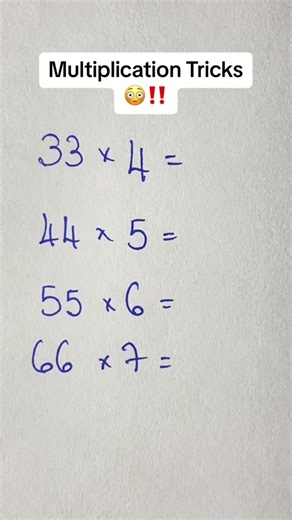 Multiplication Tricks
😳‼️
33 × 4 =
44 × 5 =
55 × 6 =
66 × 7 =